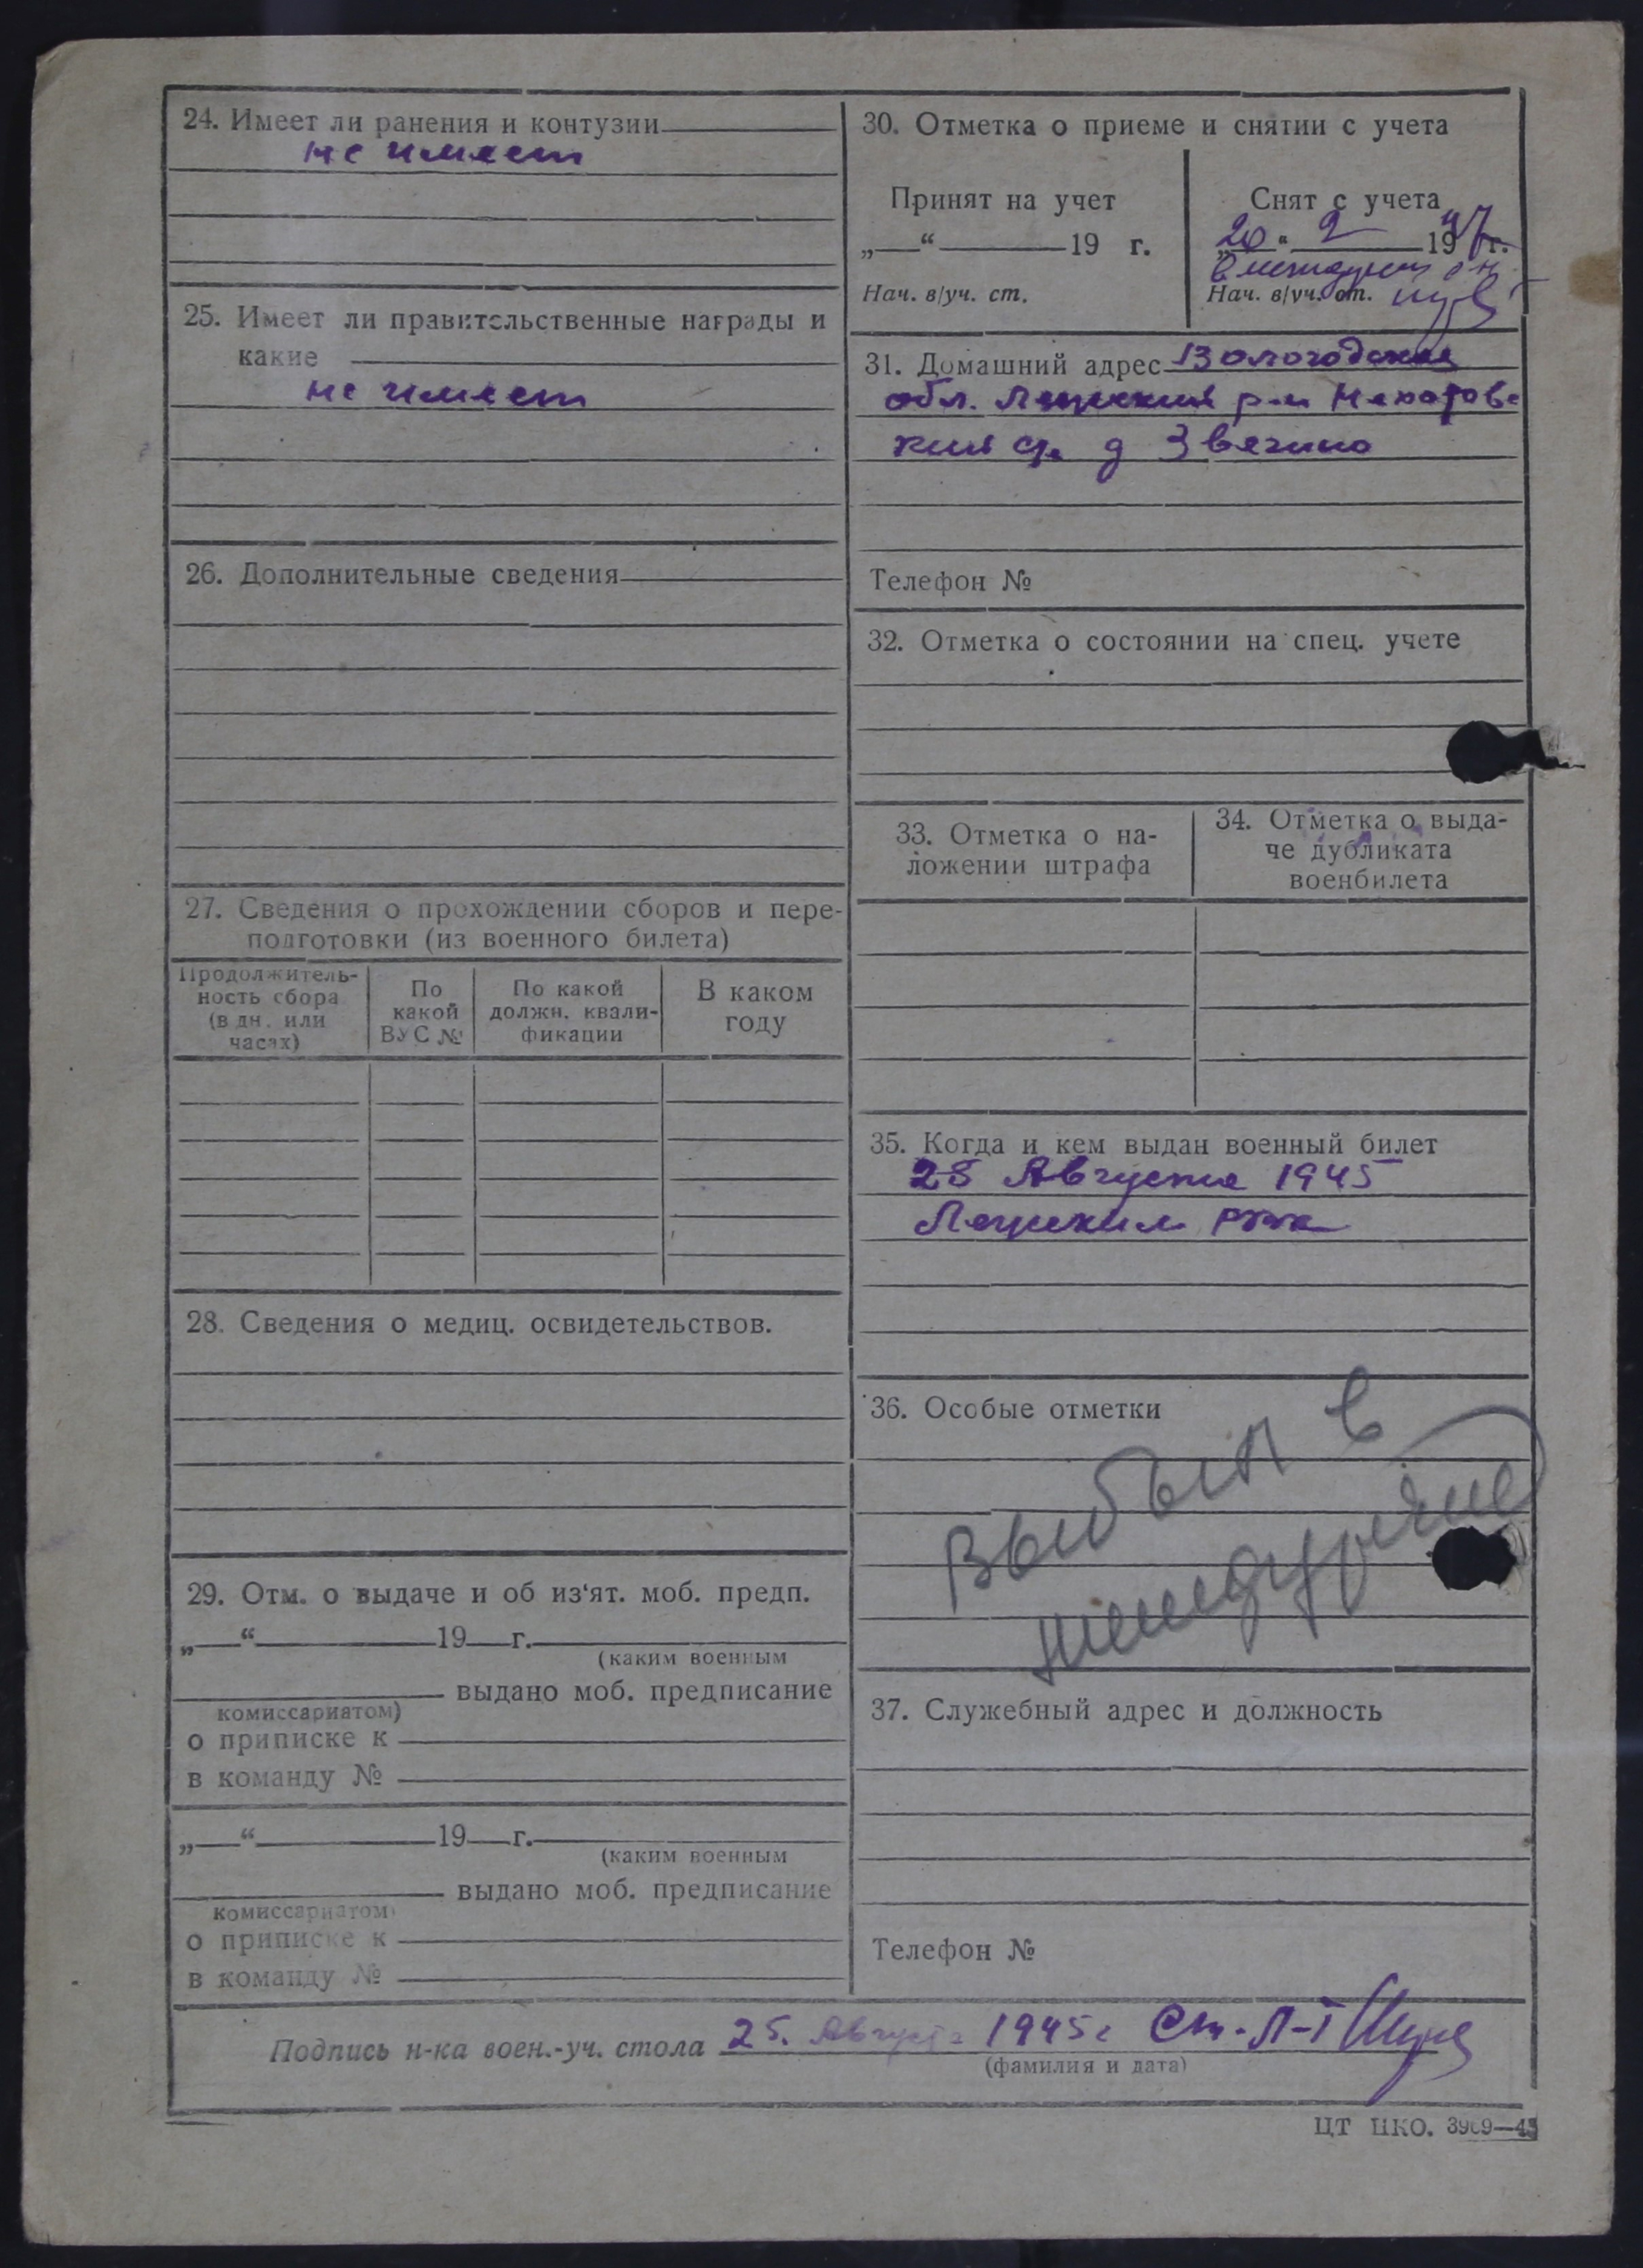 24. Имеет ли ранения и контузии
не имеет
25. Имеет ли правительственные награды и
какие
не имеет
26. Дополнительные сведения
27. Сведения о прохождении сборов и пере-
подготовки (из военного билета)
Продолжитель-
ность сбора
(в дн. или
часах)
По
какой
ВУС №
По какой
должн. квали-
фикации
В каком
году
28. Сведения о медиц. освидетельствов.
29. Отм. о выдаче и об из‘ят. моб. предп.
„—“ 19 г.
(каким военным
выдано моб. предписание
комиссариатом)
о приписке к
в команду №
„—“ 19 г.
(каким военным
выдано моб. предписание
комиссариатом)
о приписке к
в команду №
30. Отметка о приеме и снятии с учета
Принят на учет
„—“ 19 г.
Нач. в/уч. ст.
Снят с учета
„20“ 2 1947 г.
Нач. в/уч. ст.
31. Домашний адрес Вологодская
обл. р-н
д Звягино
Телефон №
32. Отметка о состоянии на спец. учете
33. Отметка о на-
ложении штрафа
34. Отметка о выда-
че дубликата
военбилета
35. Когда и кем выдан военный билет
25 Августа 1945
РВК
36. Особые отметки
Выбыл в
37. Служебный адрес и должность
Телефон №
Подпись н-ка воен.-уч. стола 25. Августа 1945г Ст. Л-т
(фамилия и дата)
ЦТ НКО. 3969—45